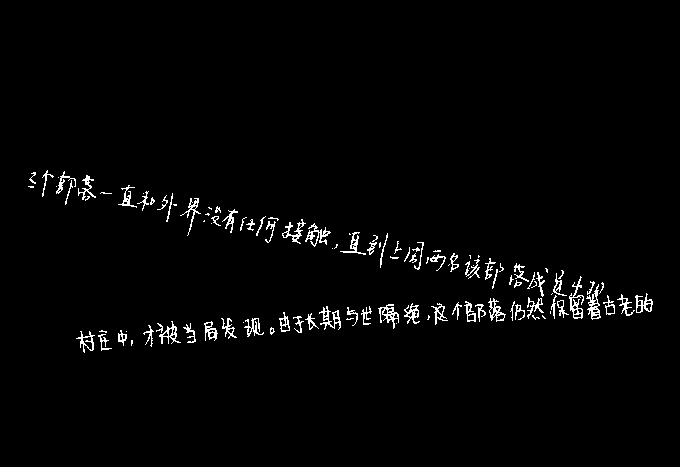 个部落一直和外界没有任何接触,直到上周,两名该部落成员出现
村庄中,才被当局发现。由于长期与世隔绝,这个部落仍然保留着古老的